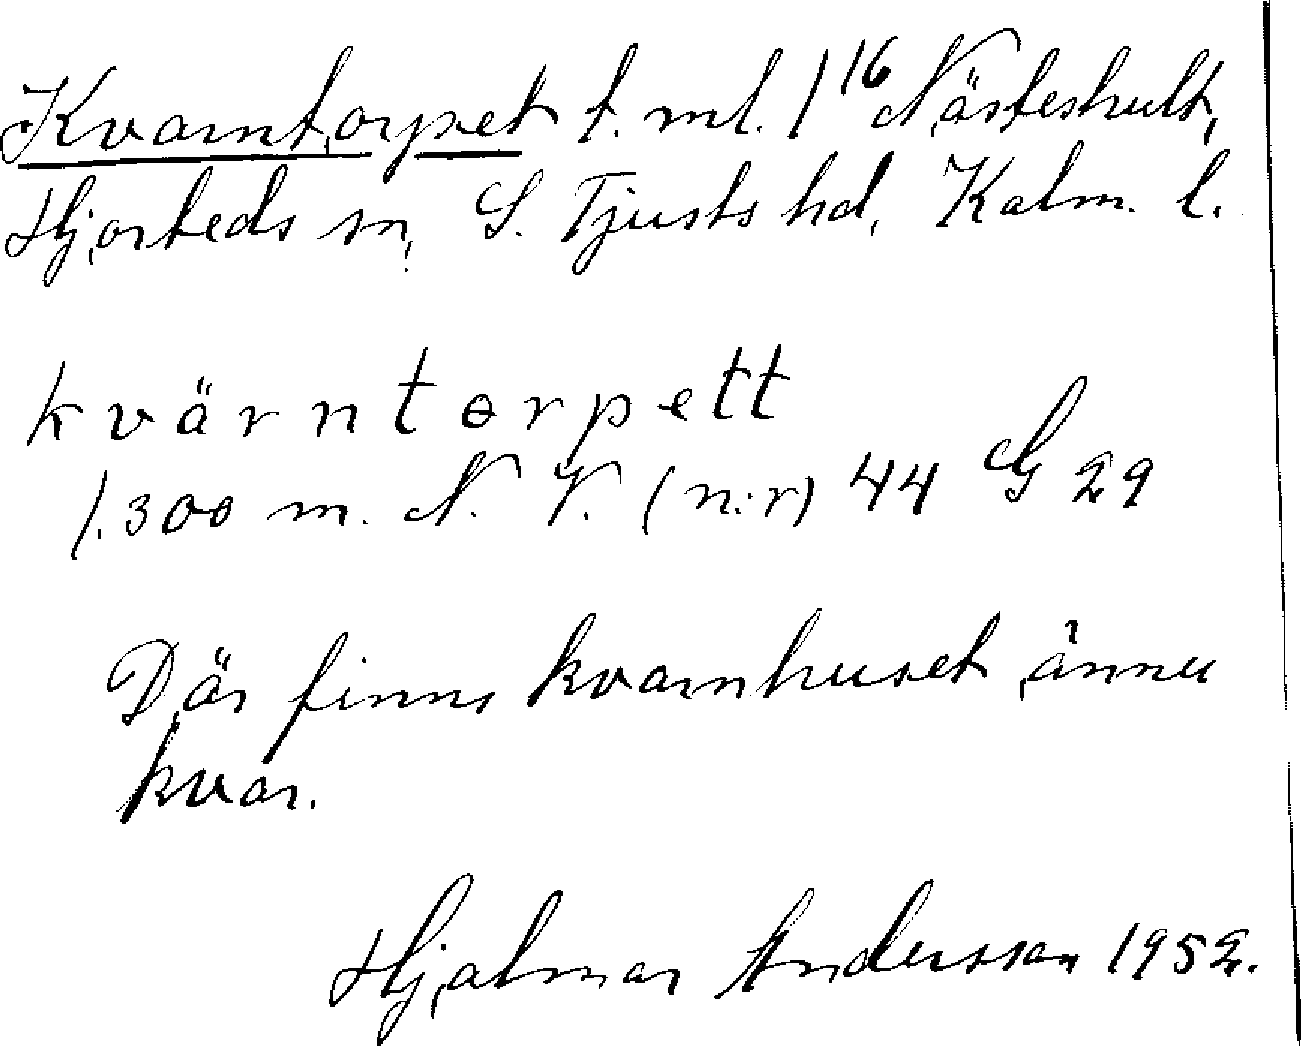 Kvarntorpet t. ml. 1¹⁶ Nästeshult,
Hjorteds sn, S. Tjusts hd, Kalm. l.
kvärntorpett
1.300 m. N. V. (n:r) 44 G 29
Där finns kvarnhuset ännu
kvar.
Hjalmar Andersson 1952.